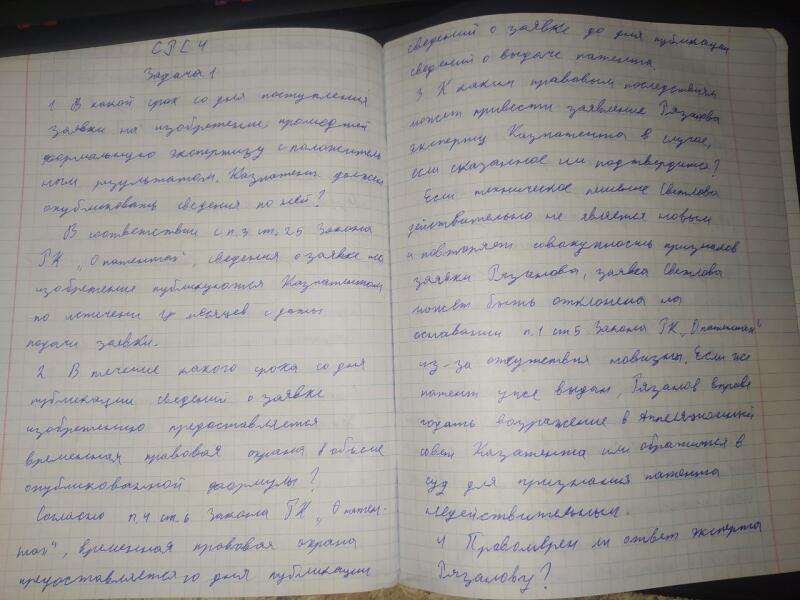 СРС 4
Задача 1
1 В какой срок со дня поступления
заявки на изобретение прошедшей
формальную экспертизу с положитель
ным результатом. Казпатент должен
опубликовать сведения по ней?
В соответствии с п.3 ст. 25 Закона
РК „О патентах", сведения о заявке на
изобретение публикуются Казпатентом
по истечени месяцев с даты
подачи заявки.
2 В течение какого срока со дня
публикации сведений о заявке
изобретению предоставляется
временная правовая охрана в объеме
опубликованной формулы?
Согласно п.4 ст.6 Закона РК „О патен-
тах", временная правовая охрана
предоставляется со дня публикации
сведений о заявке до дня публикации
сведений о выдаче патента
3 К каким правовым последствиям
может привести заявление Рязанова
эксперту Казпатента в случае,
если сказанное им подтвердится?
Если техническое решение Светлова
действительно не является новым
и повторяет совокупность признаков
заявки Рязанова, заявка Светлова
может быть отклонена на
основании п.1 ст 5 Закона РК „О патентах"
из-за отсутствия новизны. Если же
патент уже выдан, Рязанов вправе
подать возражение в Аппеляционный
совет Казпатента или обратится в
суд для признания патента
недействительным.
4 Правомерен ли ответ эксперта
Рязанову?